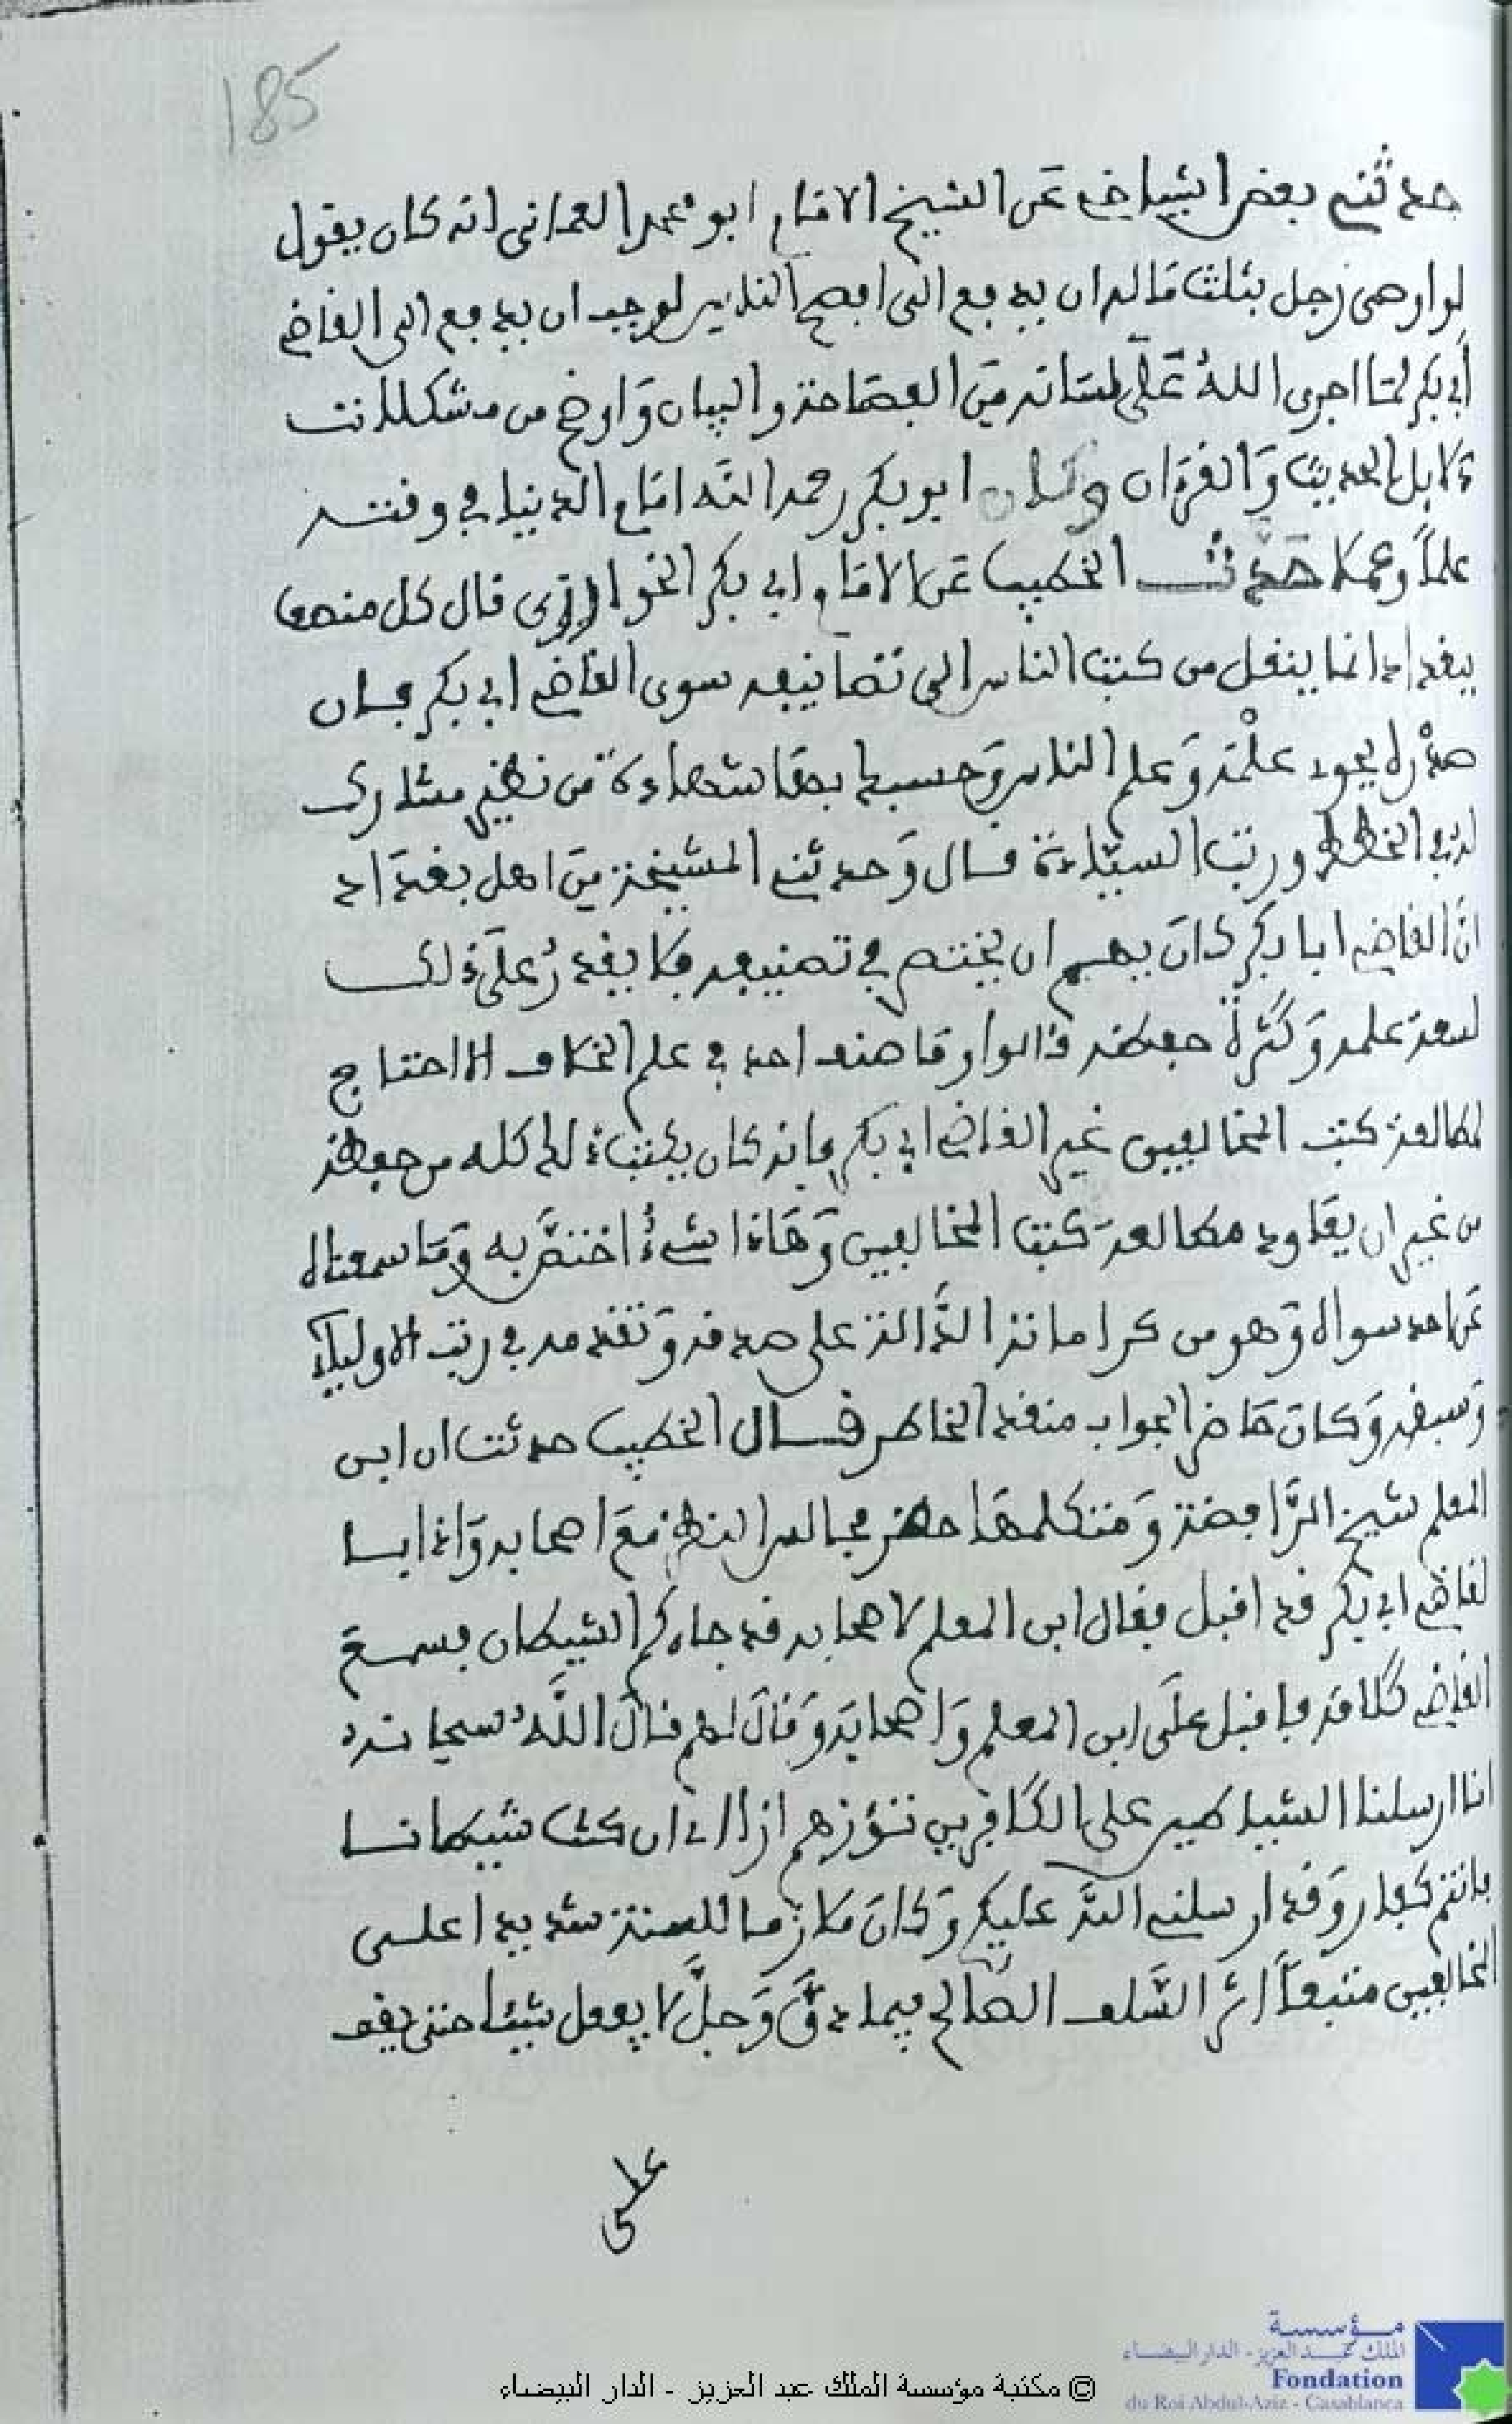 185
حدثني بعض اشياخي عن الشيخ الامام ابو محمد العماني انه كان يقول
لو اوصى رجل بثلث ماله ان يدفع الى افصح الناس لوجب ان يدفع الى القاضي
أبي بكر لما اجرى اللهُ عَلى لسانه مِن الفصاحة والبيان وَاوضح من مشكلات
دلايل الحديث وَالقرءان وكان ابو بكر رحمه الله امام الدنيا في وقته
علماً وعملا حَدَّثَ الخطيب عَن الامام ابي بكر الخوارزمي قال كل مصنف
ببغداد انما ينقل من كتب الناس الى تصانيفه سوى القاضي ابي بكر فان
صدْره يحوي علْمَه وَعلم الناس وَحسبك بها شهادة من نظير مشارك
له في الخطط ورتب السيادة قال وَحدثني المشيخة مِن اهل بغداد
انَّ القاضي ابا بكر كانَ يهم ان يختصر في تصنيفه فلا يقدرُ عَلى ذلك
لسعة علمه وَكَثْرة حفظه قالوا وما صنف احد في علم الخلاف الا احتاج
لمطالعة كتب المخالفين غير القاضي ابي بكر فانه كان يكتب ذلك كله من حفظه
من غير ان يعاود مطالعة كتب المخالفين وَهَاذا شيءٌ اختصَّ به وَما سمعناه
عَن احد سواه وَهو من كراماته الدَّالة على صدقه وَتقدمه في رتب الاولياء
وَسبقه وَكانَ حَاضر الجواب منقد الخاطر قال الخطيب حدثت ان ابن
المعلم شيخ الرَّافضة وَمتكلمها حضر مجالس النظر مَعَ اصحابه وَاذا بـا
لقاضي ابي بكر قد اقبل فقال ابن المعلم لاصحابه قد جاءكم الشيطان فسمع
القاضي كَلامَه فاقبل علَى ابن المعلم وَاصحابه وَقالَ لهم قالَ اللَّهُ سبحانه
انا ارسلنا الشياطين على الكافرين تؤزهم ازا اي ان كنت شيطانا
فانتم كفار وَقد ارسلني الله عليكم وَكانَ ملازما للسنة شديدا على
المخالفين متبعاً اثرَ السَّلف الصَّالح فيما دقَّ وَجلَّ لا يفعل شيئا حتى يقف
على
مؤسسة
الملك عبد العزيز - الدار البيضاء
Fondation
du Roi Abdul-Aziz - Casablanca
© مكتبة مؤسسة الملك عبد العزيز - الدار البيضاء